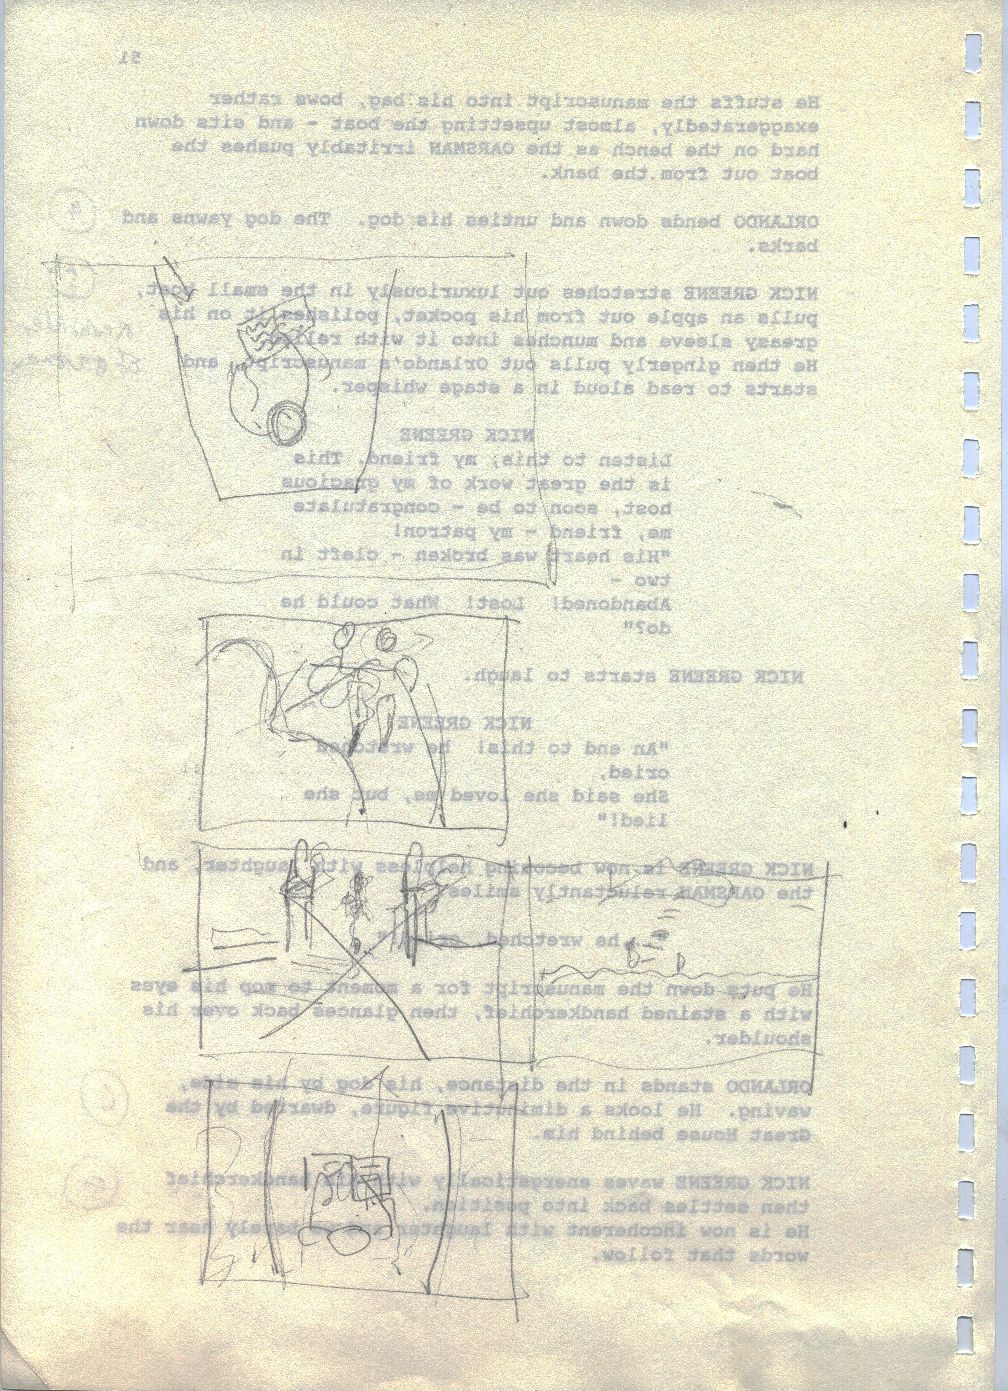 51
He stuffs the manuscript into his bag, bows rather
exaggeratedly, almost upsetting the boat - and sits down
hard on the bench as the OARSMAN irritably pushes the
boat out from the bank.
ORLANDO bends down and unties his dog. The dog yawns and
barks.
NICK GREENE stretches out luxuriously in the small boat,
pulls an apple out from his pocket, polishes it on his
greasy sleeve and munches into it with relish.
He then gingerly pulls out Orlando's manuscript, and
starts to read aloud in a stage whisper.
NICK GREENE
Listen to this; my friend. This
is the great work of my gracious
host, soon to be - congratulate
me, friend - my patron!
"His heart was broken - cleft in
two -
Abandoned! Lost! What could he
do?"
NICK GREENE starts to laugh.
NICK GREENE
"An end to this! he wretched
cried,
She said she loved me, but she
lied!"
NICK GREENE is now becoming helpless with laughter, and
the OARSMAN reluctantly smiles.
"... he wretched cried!"
He puts down the manuscript for a moment to mop his eyes
with a stained handkerchief, then glances back over his
shoulder.
ORLANDO stands in the distance, his dog by his side,
waving. He looks a diminutive figure, dwarfed by the
Great House behind him.
NICK GREENE waves energetically with his handkerchief
then settles back into position.
He is now incoherent with laughter we barely hear the
words that follow.